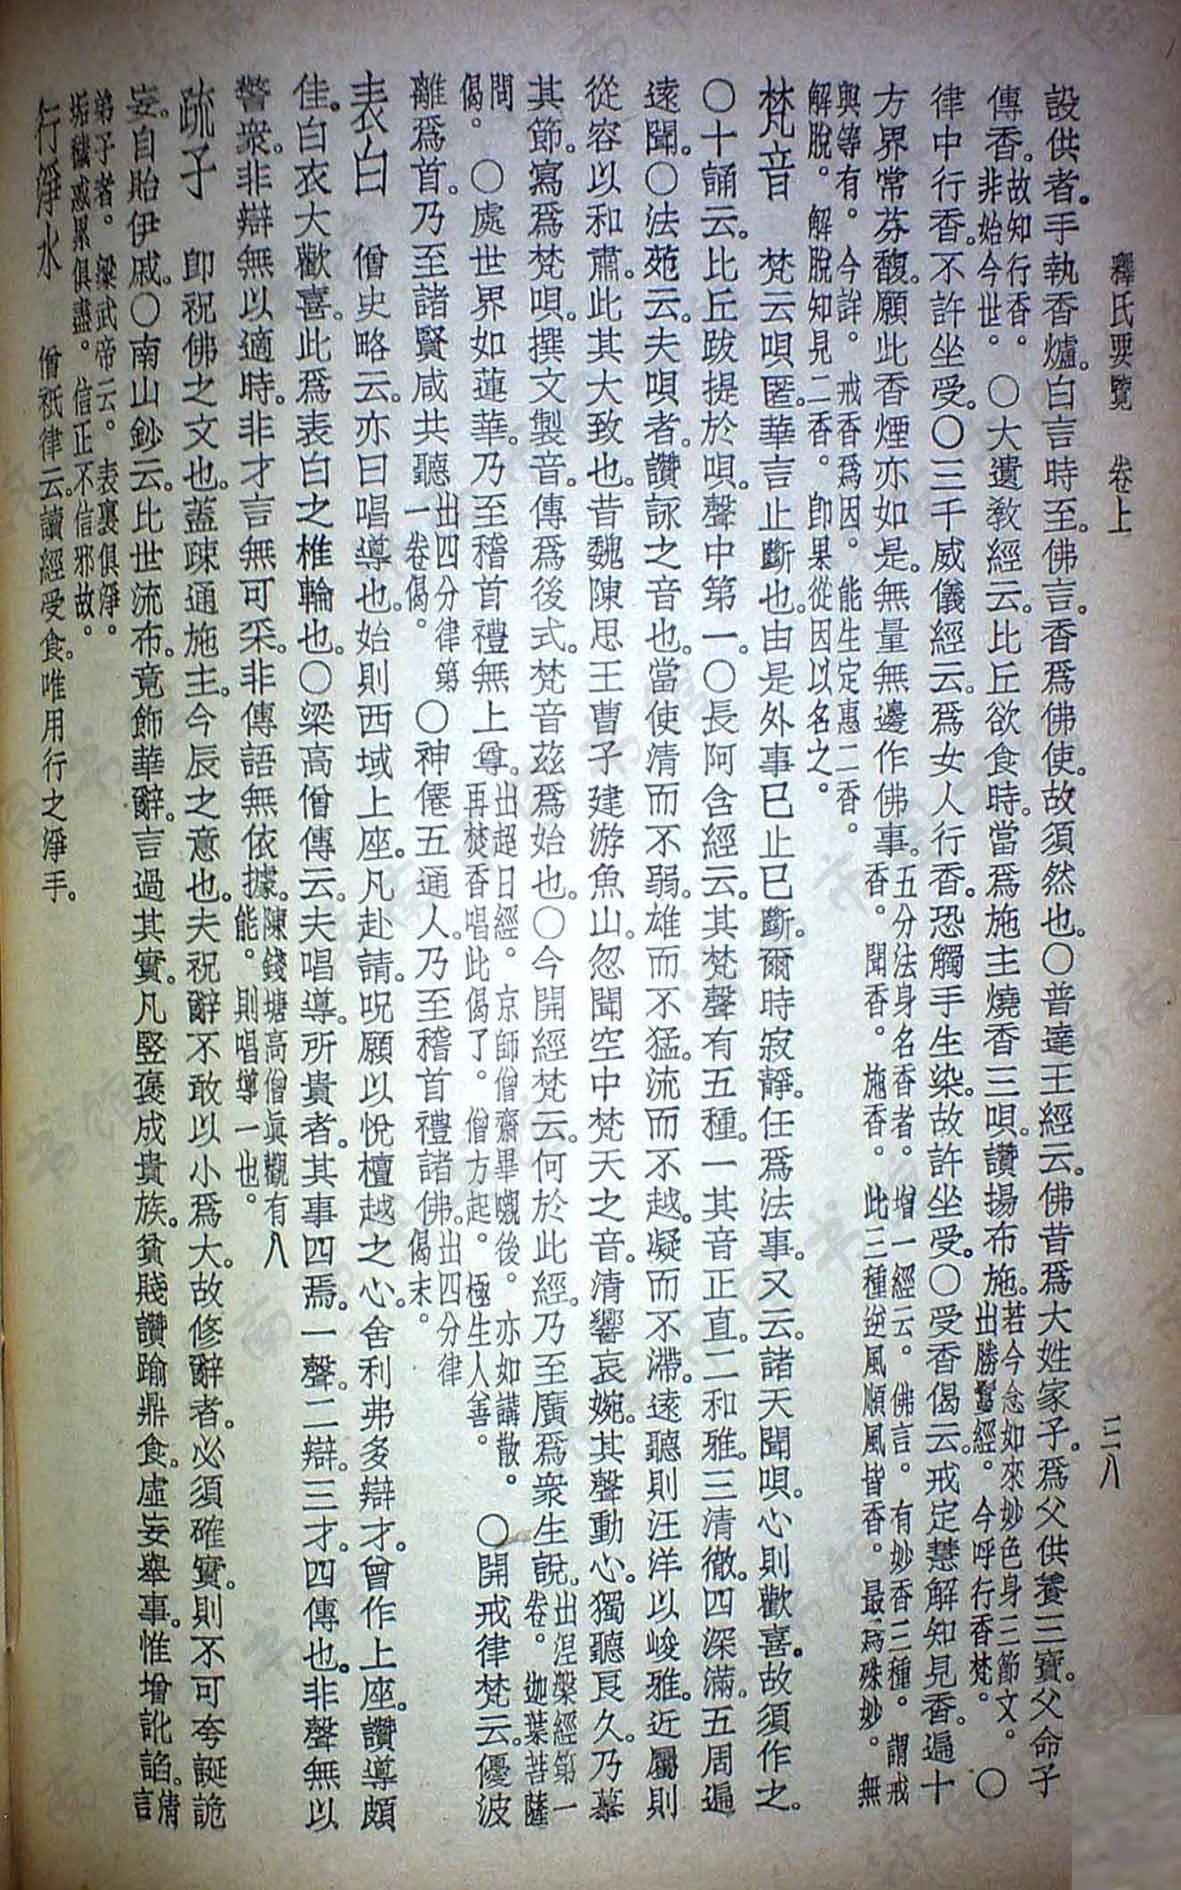 釋氏要覽　卷上　三八
設供者。手執香爐。白言時至。佛言。香爲佛使。故須然也。〇普達王經云。佛昔爲大姓家子。爲父供養三寶。父命子
傳香。故知行香。非始今世。〇大遺教經云。比丘欲食時。當爲施主燒香三唄。讚揚布施。若今念如來妙色身三節文。出勝鬘經。今呼行香梵。〇
律中行香。不許坐受。〇三千威儀經云。爲女人行香。恐觸手生染。故許坐受。〇受香偈云。戒定慧解知見香。遍十
方界常芬馥。願此香煙亦如是。無量無邊作佛事。五分法身名香者。增一經云。佛言。有妙香三種。謂戒香。聞香。施香。此三種逆風順風皆香。最爲殊妙。無
與等有。今詳。戒香爲因。能生定惠二香。解脫。解脫知見二香。卽果從因以名之。
梵音　梵云唄匿。華言止斷也。由是外事已止已斷。爾時寂靜。任爲法事。又云。諸天聞唄。心則歡喜。故須作之。
〇十誦云。比丘跋提於唄。聲中第一。〇長阿含經云。其梵聲有五種。一其音正直。二和雅。三清徹。四深滿。五周遍
遠聞。〇法苑云。夫唄者。讚詠之音也。當使清而不弱。雄而不猛。流而不越。凝而不滯。遠聽則汪洋以峻雅。近屬則
從容以和肅。此其大致也。昔魏陳思王曹子建游魚山。忽聞空中梵天之音。清響哀婉。其聲動心。獨聽良久。乃慕
其節。寫爲梵唄。撰文製音。傳爲後式。梵音茲爲始也。〇今開經梵云。何於此經。乃至廣爲衆生說。出涅槃經第一卷。迦葉菩薩
問偈。〇處世界如蓮華。乃至稽首禮無上尊。出超日經。京師僧齋畢嚫後。亦如講散。再焚香唱此偈了。僧方起。極生人善。〇開戒律梵云。優波
離爲首。乃至諸賢咸共聽。出四分律第一卷偈。〇神僊五通人。乃至稽首禮諸佛。出四分律偈末。
表白　僧史略云。亦曰唱導也。始則西域上座。凡赴請。呪願以悅檀越之心。舍利弗多辯才。曾作上座。讚導頗
佳。白衣大歡喜。此爲表白之椎輪也。〇梁高僧傳云。夫唱導。所貴者。其事四焉。一聲。二辯。三才。四傳也。非聲無以
警衆。非辯無以適時。非才言無可采。非傳語無依據。陳錢塘高僧眞觀有八能。則唱導一也。
疏子　卽祝佛之文也。蓋踈通施主。今辰之意也。夫祝辭不敢以小爲大。故修辭者。必須確實。則不可夸誕詭
妄。自貽伊戚。〇南山鈔云。比世流布。竟飾華辭。言過其實。凡竪褒成貴族。貧賤讚踰鼎食。虛妄舉事。惟增訛諂。言清
弟子者。梁武帝云。表裏俱淨。垢穢惑累俱盡。信正不信邪故。
行淨水　僧祇律云。讀經受食。唯用行之淨手。